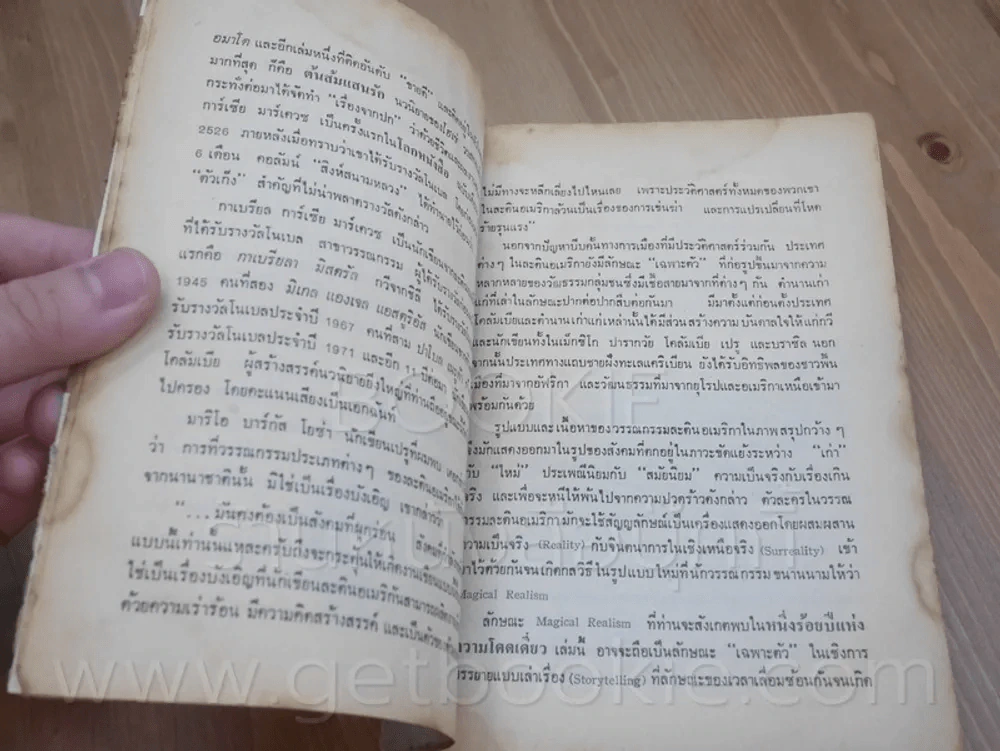 อมาโด และอีกเล่มหนึ่งที่ติดอันดับ “ขายดี” และติดอยู่ใน
มากที่สุด ก็คือ ต้นส้มแสนรัก นวนิยายของโฮเซ่
กระทั่งต่อมาได้จัดทำ “เรื่องจากปก” ว่าด้วยชีวิตและ
การ์เซีย มาร์เควซ เป็นครั้งแรกในโลกหนังสือ
2526 ภายหลังเมื่อทราบว่าเขาได้รับรางวัลโนเบล
6 เดือน คอลัมน์ “สิงห์สนามหลวง” ได้ทำนายไว้
“ตัวเก็ง” สำคัญที่ไม่น่าพลาดรางวัลดังกล่าว
กาเบรียล การ์เซีย มาร์เควซ เป็นนักเขียนจาก
ที่ได้รับรางวัลโนเบล สาขาวรรณกรรม ผู้ได้รับรางวัล
แรกคือ กาเบรียลา มิสตรัล กวีจากชิลี ได้รับ
1945 คนที่สอง มิเกล แองเจล แอสตูริอัส นักเขียน
รับรางวัลโนเบลประจำปี 1967 คนที่สาม ปาโบล
รับรางวัลโนเบลประจำปี 1971 และอีก 11 ปีต่อมา
โคลัมเบีย ผู้สร้างสรรค์นวนิยายยิ่งใหญ่ที่ท่านถืออยู่
ไปครอง โดยคะแนนเสียงเป็นเอกฉันท์
มาริโอ บาร์กัส โยซ่า นักเขียนเปรูที่ผมพบ
ว่า การที่วรรณกรรมประเภทต่างๆ ของละตินอเมริกา
จากนานาชาตินั้น มิใช่เป็นเรื่องบังเอิญ เขากล่าวว่า
“...มันคงต้องเป็นสังคมที่ผุกร่อน สังคมที่
แบบนี้เท่านั้นแหละครับถึงจะกระตุ้นให้เกิดงานเขียนแบบ
ใช่เป็นเรื่องบังเอิญที่นักเขียนละตินอเมริกันสามารถผลิต
ด้วยความเร่าร้อน มีความคิดสร้างสรรค์ และเป็นตัวของ
ไม่มีทางจะหลีกเลี่ยงไปไหนเลย เพราะประวัติศาสตร์ทั้งหมดของพวกเขา
ในละตินอเมริกาล้วนเป็นเรื่องของการเข่นฆ่า และการแปรเปลี่ยนที่โหด
ร้ายรุนแรง”
นอกจากปัญหาบีบคั้นทางการเมืองที่มีประวัติศาสตร์ร่วมกัน ประเทศ
ต่างๆ ในละตินอเมริกายังมีลักษณะ “เฉพาะตัว” ที่ก่อรูปขึ้นมาจากความ
หลากหลายของวัฒนธรรมกลุ่มชนซึ่งมีเชื้อสายมาจากที่ต่างๆ กัน ตำนานเก่า
แก่ที่เล่าในลักษณะปากต่อปากสืบต่อกันมา มีมาตั้งแต่ก่อนตั้งประเทศ
โคลัมเบียและตำนานเก่าแก่เหล่านั้นได้มีส่วนสร้างความบันดาลใจให้แก่กวี
และนักเขียนทั้งในเม็กซิโก ปารากวัย โคลัมเบีย เปรู และบราซิล นอก
จากนั้นประเทศทางแถบชายฝั่งทะเลแคริเบียน ยังได้รับอิทธิพลของชาวพื้น
เมืองที่มาจากอัฟริกา และวัฒนธรรมที่มาจากยุโรปและอเมริกาเหนือเข้ามา
พร้อมกันด้วย
รูปแบบและเนื้อหาของวรรณกรรมละตินอเมริกาในภาพสรุปกว้าง ๆ
จึงมักแสดงออกมาในรูปของสังคมที่ตกอยู่ในภาวะขัดแย้งระหว่าง “เก่า”
กับ “ใหม่” ประเพณีนิยมกับ “สมัยนิยม” ความเป็นจริงกับเรื่องเกิน
จริง และเพื่อจะหนีให้พ้นไปจากความปวดร้าวดังกล่าว ตัวละครในวรรณ
กรรมละตินอเมริกามักจะใช้สัญญลักษณ์เป็นเครื่องแสดงออกโดยผสมผสาน
ความเป็นจริง (Reality) กับจินตนาการในเชิงเหนือจริง (Surreality) เข้า
เอาไว้ด้วยกันจนเกิดกลวิธีในรูปแบบใหม่ที่นักวรรณกรรมขนานนามให้ว่า
Magical Realism
ลักษณะ Magical Realism ที่ท่านจะสังเกตพบในหนึ่งร้อยปีแห่ง
ความโดดเดี่ยว เล่มนี้ อาจจะถือเป็นลักษณะ “เฉพาะตัว” ในเชิงการ
บรรยายแบบเล่าเรื่อง (Storytelling) ที่ลักษณะของเวลาเลื่อมซ้อนกันจนเกิด
BOOKIE
www.getbookie.com